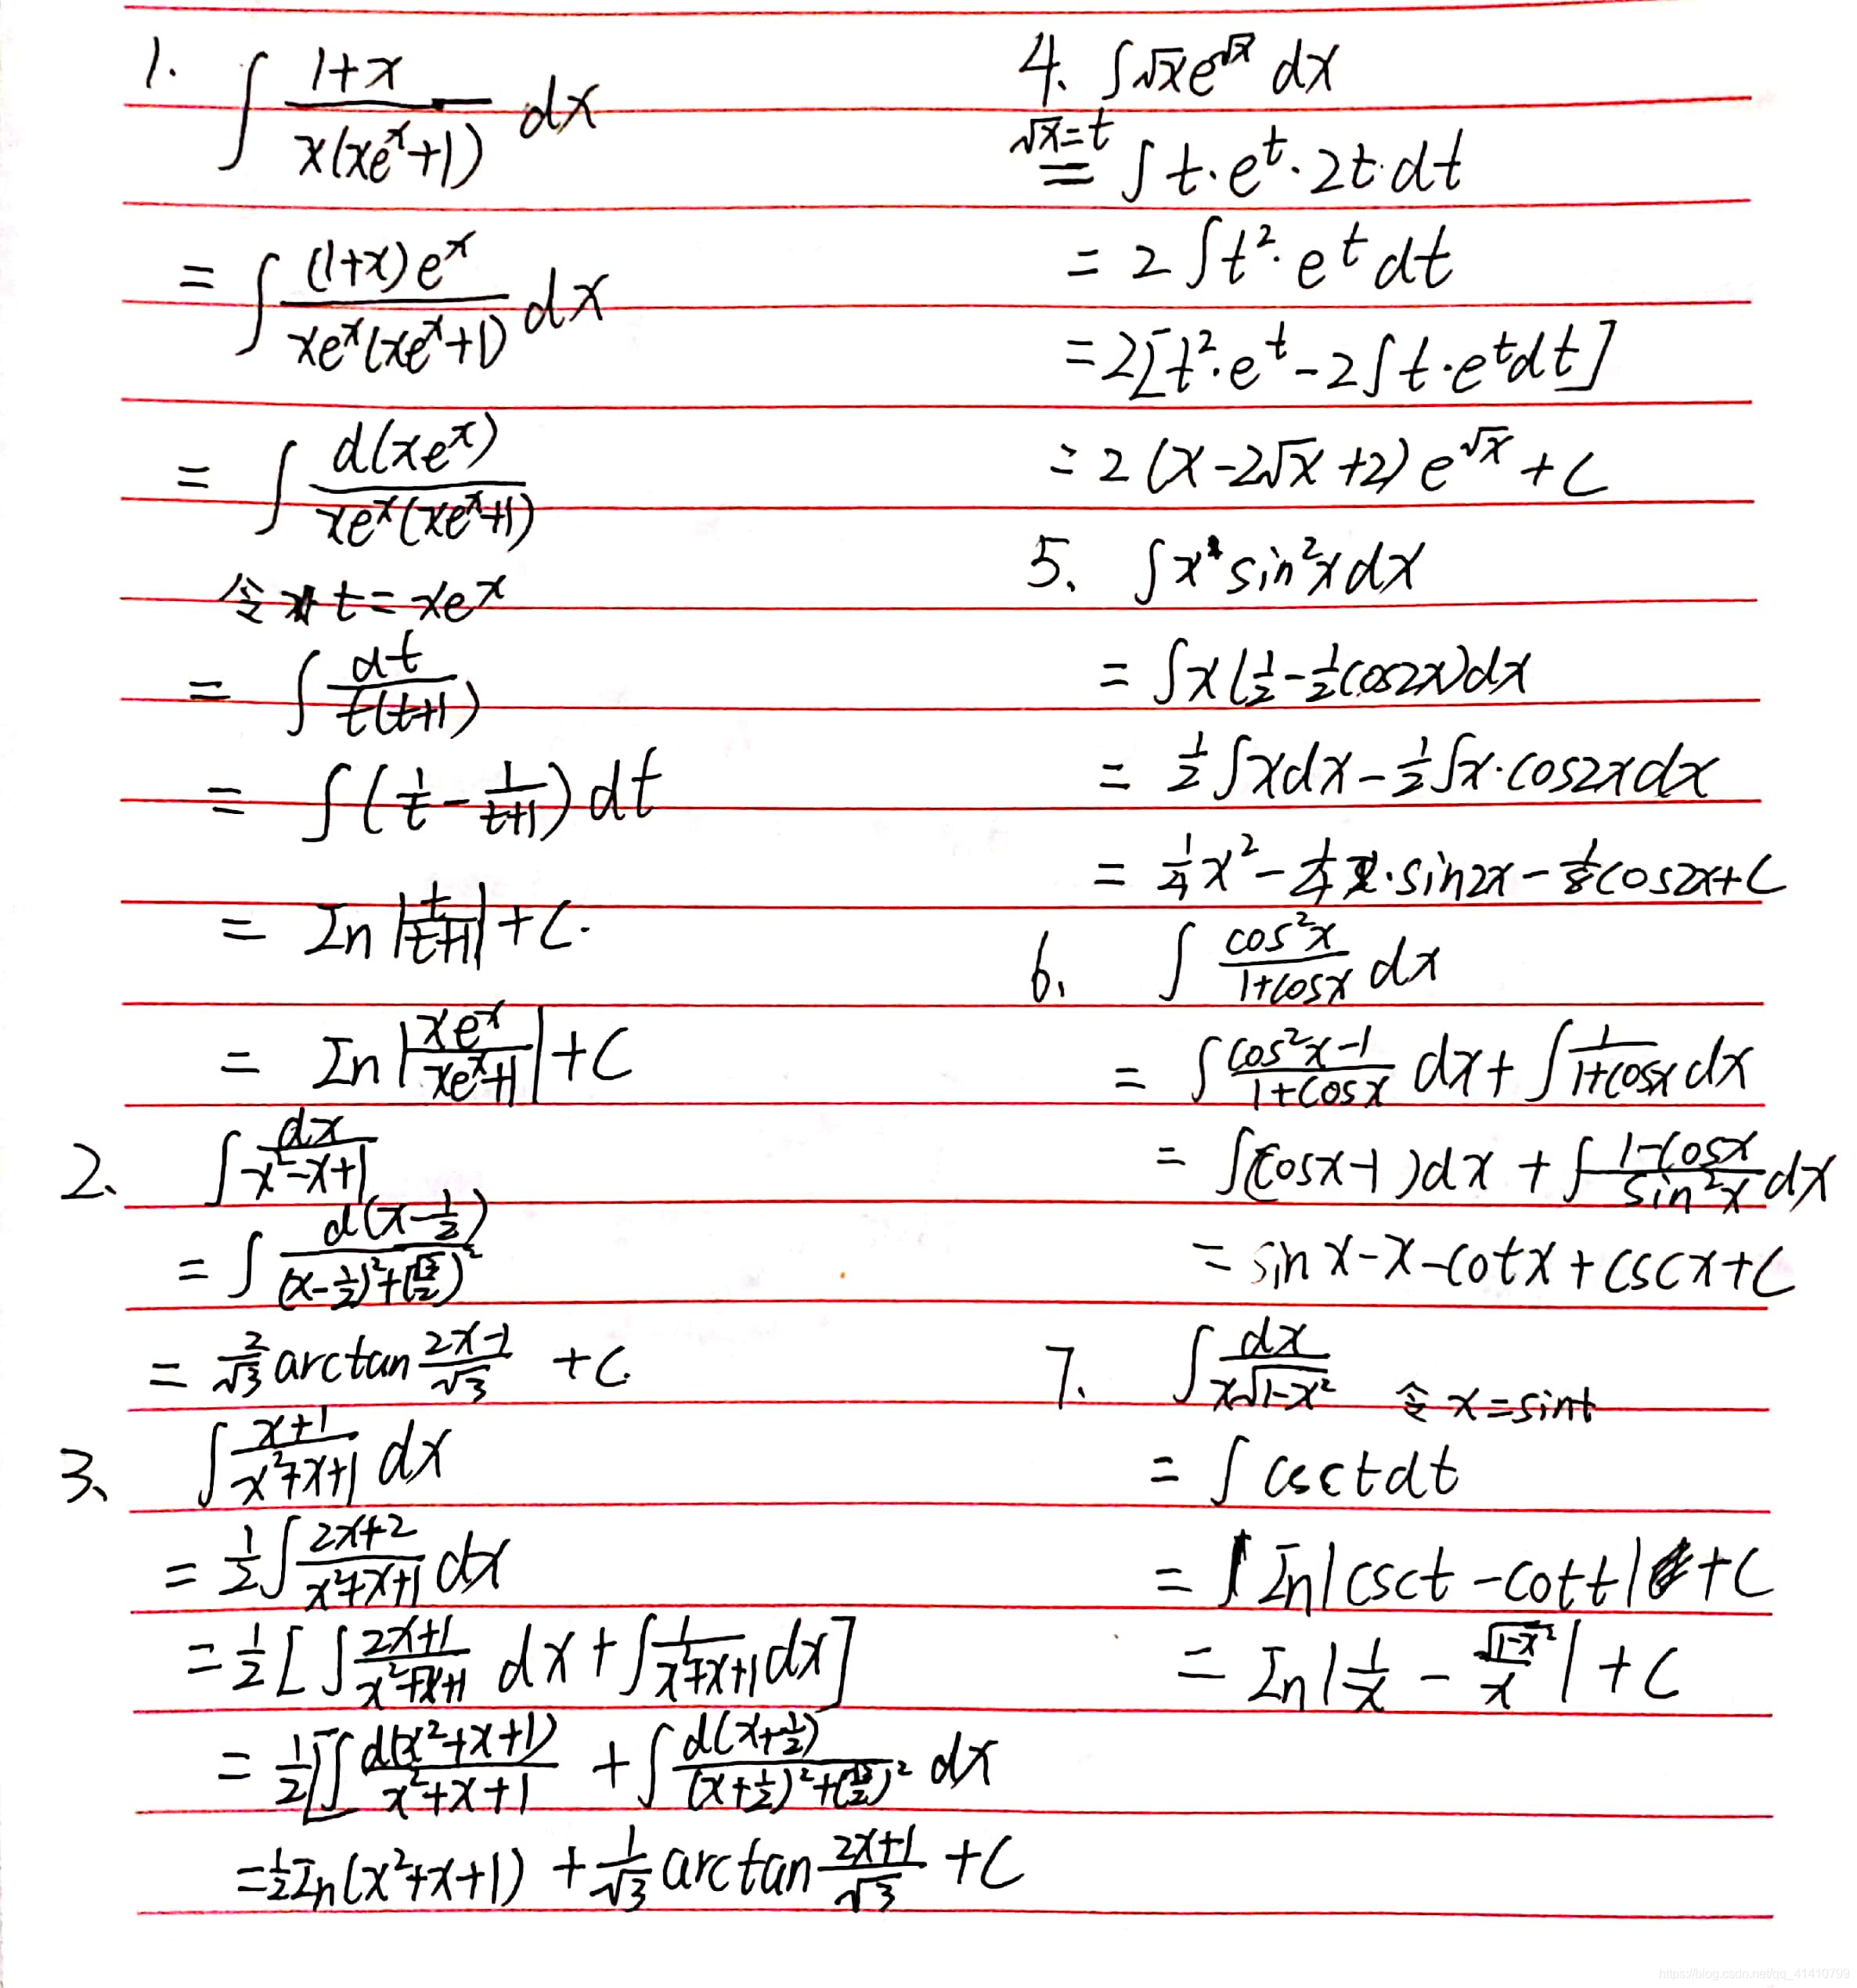 1. ∫ (1+x)/(x(xe^x+1)) dx
= ∫ ((1+x)e^x)/(xe^x(xe^x+1)) dx
= ∫ d(xe^x)/(xe^x(xe^x+1))
令 t=xe^x
= ∫ dt/(t(t+1))
= ∫ (1/t - 1/(t+1)) dt
= In |t/(t+1)| + C.
= In |xe^x/(xe^x+1)| + C
2、 ∫ dx/(x²-x+1)
= ∫ d(x-1/2)/((x-1/2)²+(√3/2)²)
= 2/√3 arctan (2x-1)/√3 + C.
3、 ∫ (x+1)/(x²+x+1) dx
= 1/2 ∫ (2x+2)/(x²+x+1) dx
= 1/2 [∫ (2x+1)/(x²+x+1) dx + ∫ 1/(x²+x+1) dx]
= 1/2 [∫ d(x²+x+1)/(x²+x+1) + ∫ d(x+1/2)/((x+1/2)²+(√3/2)²) dx
= 1/2 In(x²+x+1) + 1/√3 arctan (2x+1)/√3 + C
4、 ∫ √x e^√x dx
√x=t
= ∫ t·e^t·2t·dt
= 2 ∫ t²·e^t dt
= 2[t²·e^t - 2∫ t·e^t dt]
= 2 (x-2√x+2) e^√x + C
5、 ∫ x sin²x dx
= ∫ x(1/2 - 1/2 cos2x) dx
= 1/2 ∫ x dx - 1/2 ∫ x·cos2x dx
= 1/4 x² - 1/4 x·sin2x - 1/8 cos2x + C
6、 ∫ cos²x/(1+cosx) dx
= ∫ (cos²x-1)/(1+cosx) dx + ∫ 1/(1+cosx) dx
= ∫ (cosx-1) dx + ∫ (1-cosx)/sin²x dx
= sin x - x - cotx + cscx + C
7、 ∫ dx/(x√(1-x²)) 令 x=sint
= ∫ csctdt
= In|csct - cott| + C
= In|1/x - √(1-x²)/x| + C
https://blog.csdn.net/qq_41410799